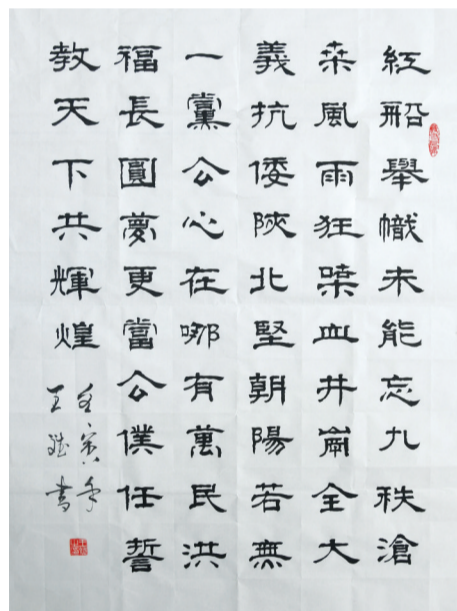 紅船舉幟未能忘九秩滄
桒風雨狂喋血井崗全大
義抗倭陝北堅朝陽若無
一黨公心在哪有萬民洪
福長圓夢更當公僕任誓
教天下共輝煌
壬寅年
王書